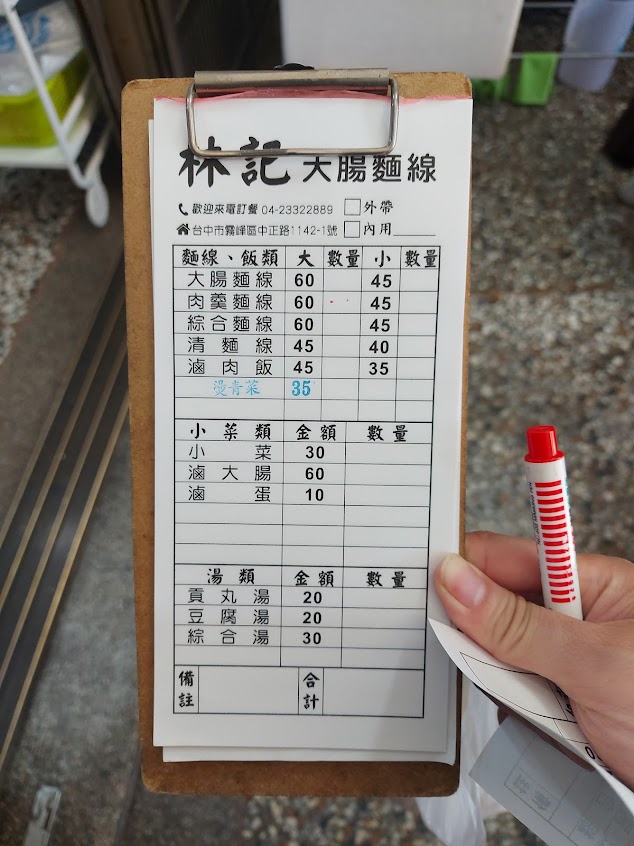 林記大腸麵線
歡迎來電訂餐 04-23322889 外帶
台中市霧峰區中正路1142-1號 內用
麵線、飯類 大 數量 小 數量
大腸麵線 60 45
肉羹麵線 60 45
綜合麵線 60 45
清麵線 45 40
滷肉飯 45 35
燙青菜 35
小菜類 金額 數量
小菜 30
滷大腸 60
滷蛋 10
湯類 金額 數量
貢丸湯 20
豆腐湯 20
綜合湯 30
備註 合計